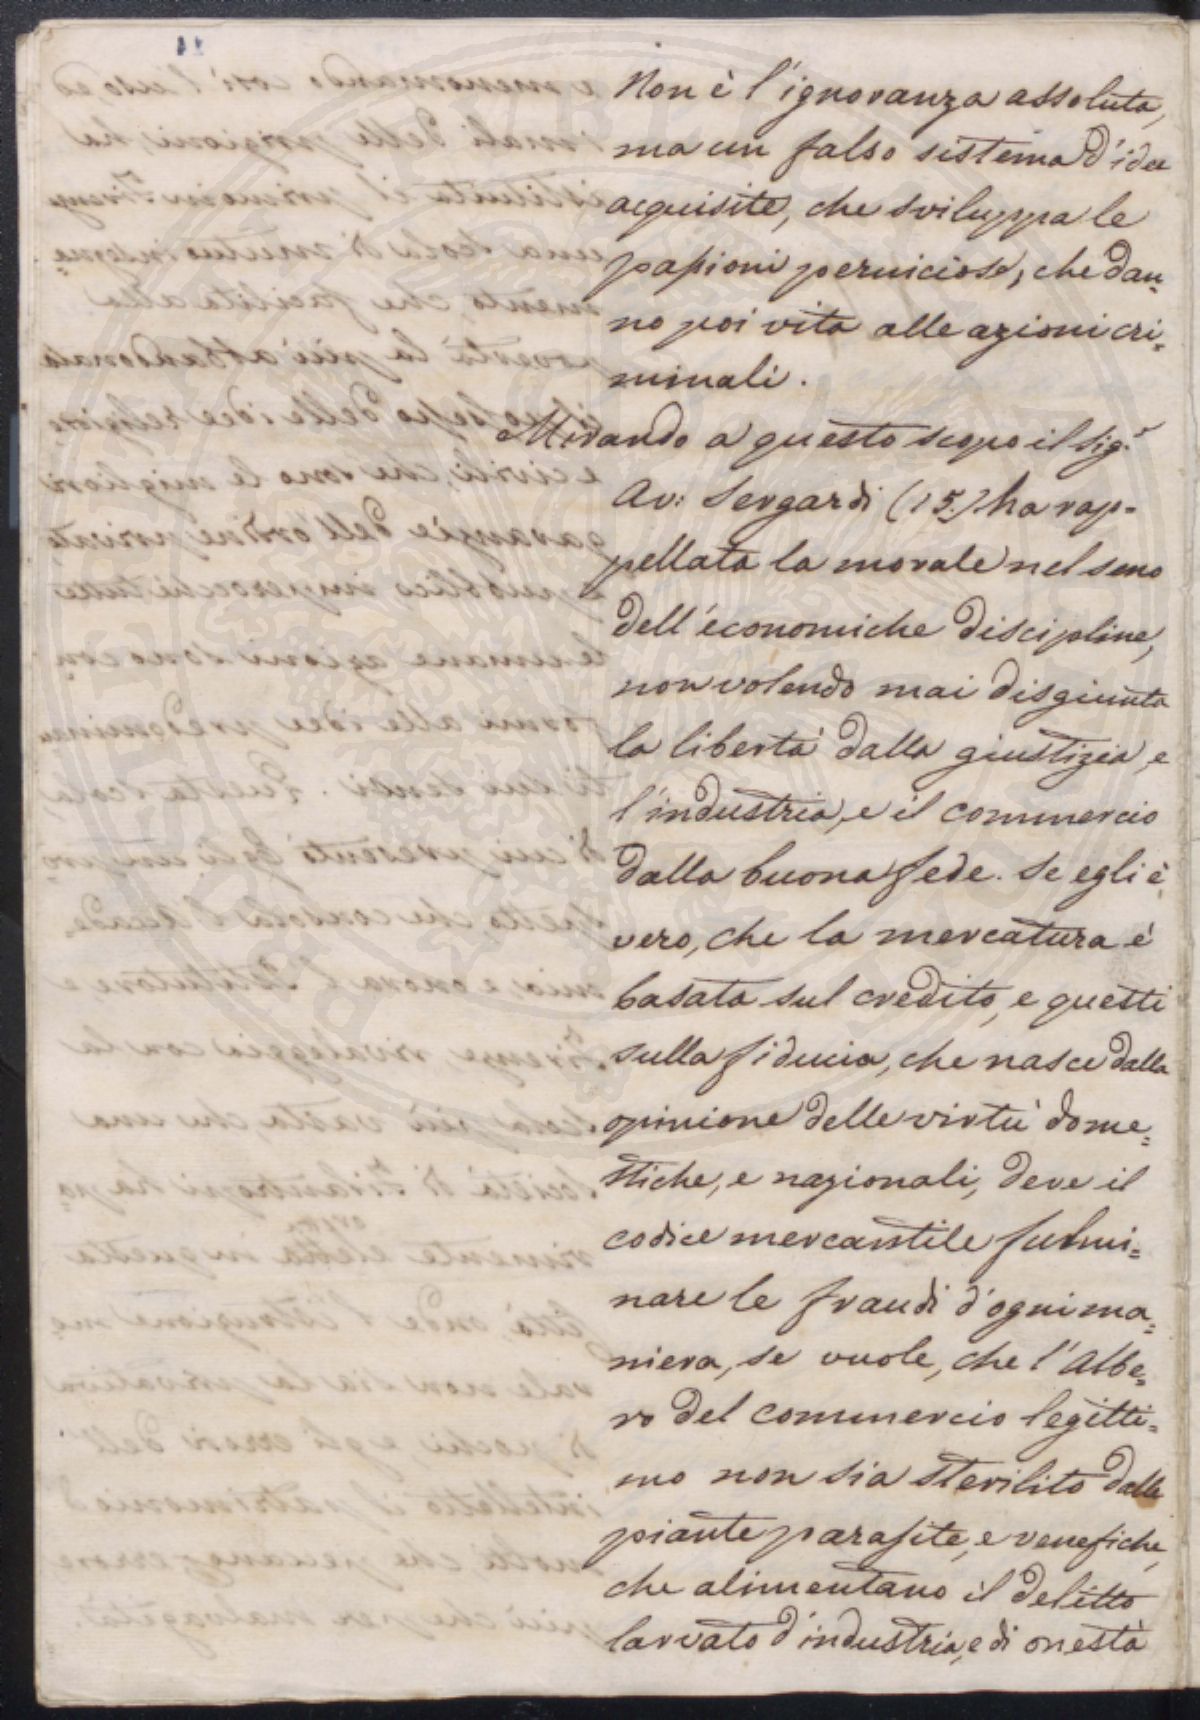 Non è l'ignoranza assoluta,
ma un falso sistema d'idee
acquisite, che sviluppa le
passioni perniciose, che dan=
no poi vita alle azioni cri=
minali.
Mirando a questo scopo il Sig.r
Av: Sergardi (15.) ha rap=
pellata la morale nel seno
dell'economiche discipline,
non volendo mai disgiunta
la libertà dalla giustizia, e
l'industria, e il commercio
dalla buona fede. Se egli è
vero, che la mercatura è
basata sul credito, e questi
sulla fiducia, che nasce dalla
opinione delle virtù dome=
stiche, e nazionali, deve il
codice mercantile fulmi=
nare le fraudi d'ogni ma=
niera, se vuole, che l'Albe=
ro del commercio legitti=
mo non sia sterilito dalle
piante parasite, e venefiche,
che alimentano il delitto
larvato d'industria, e di onestà